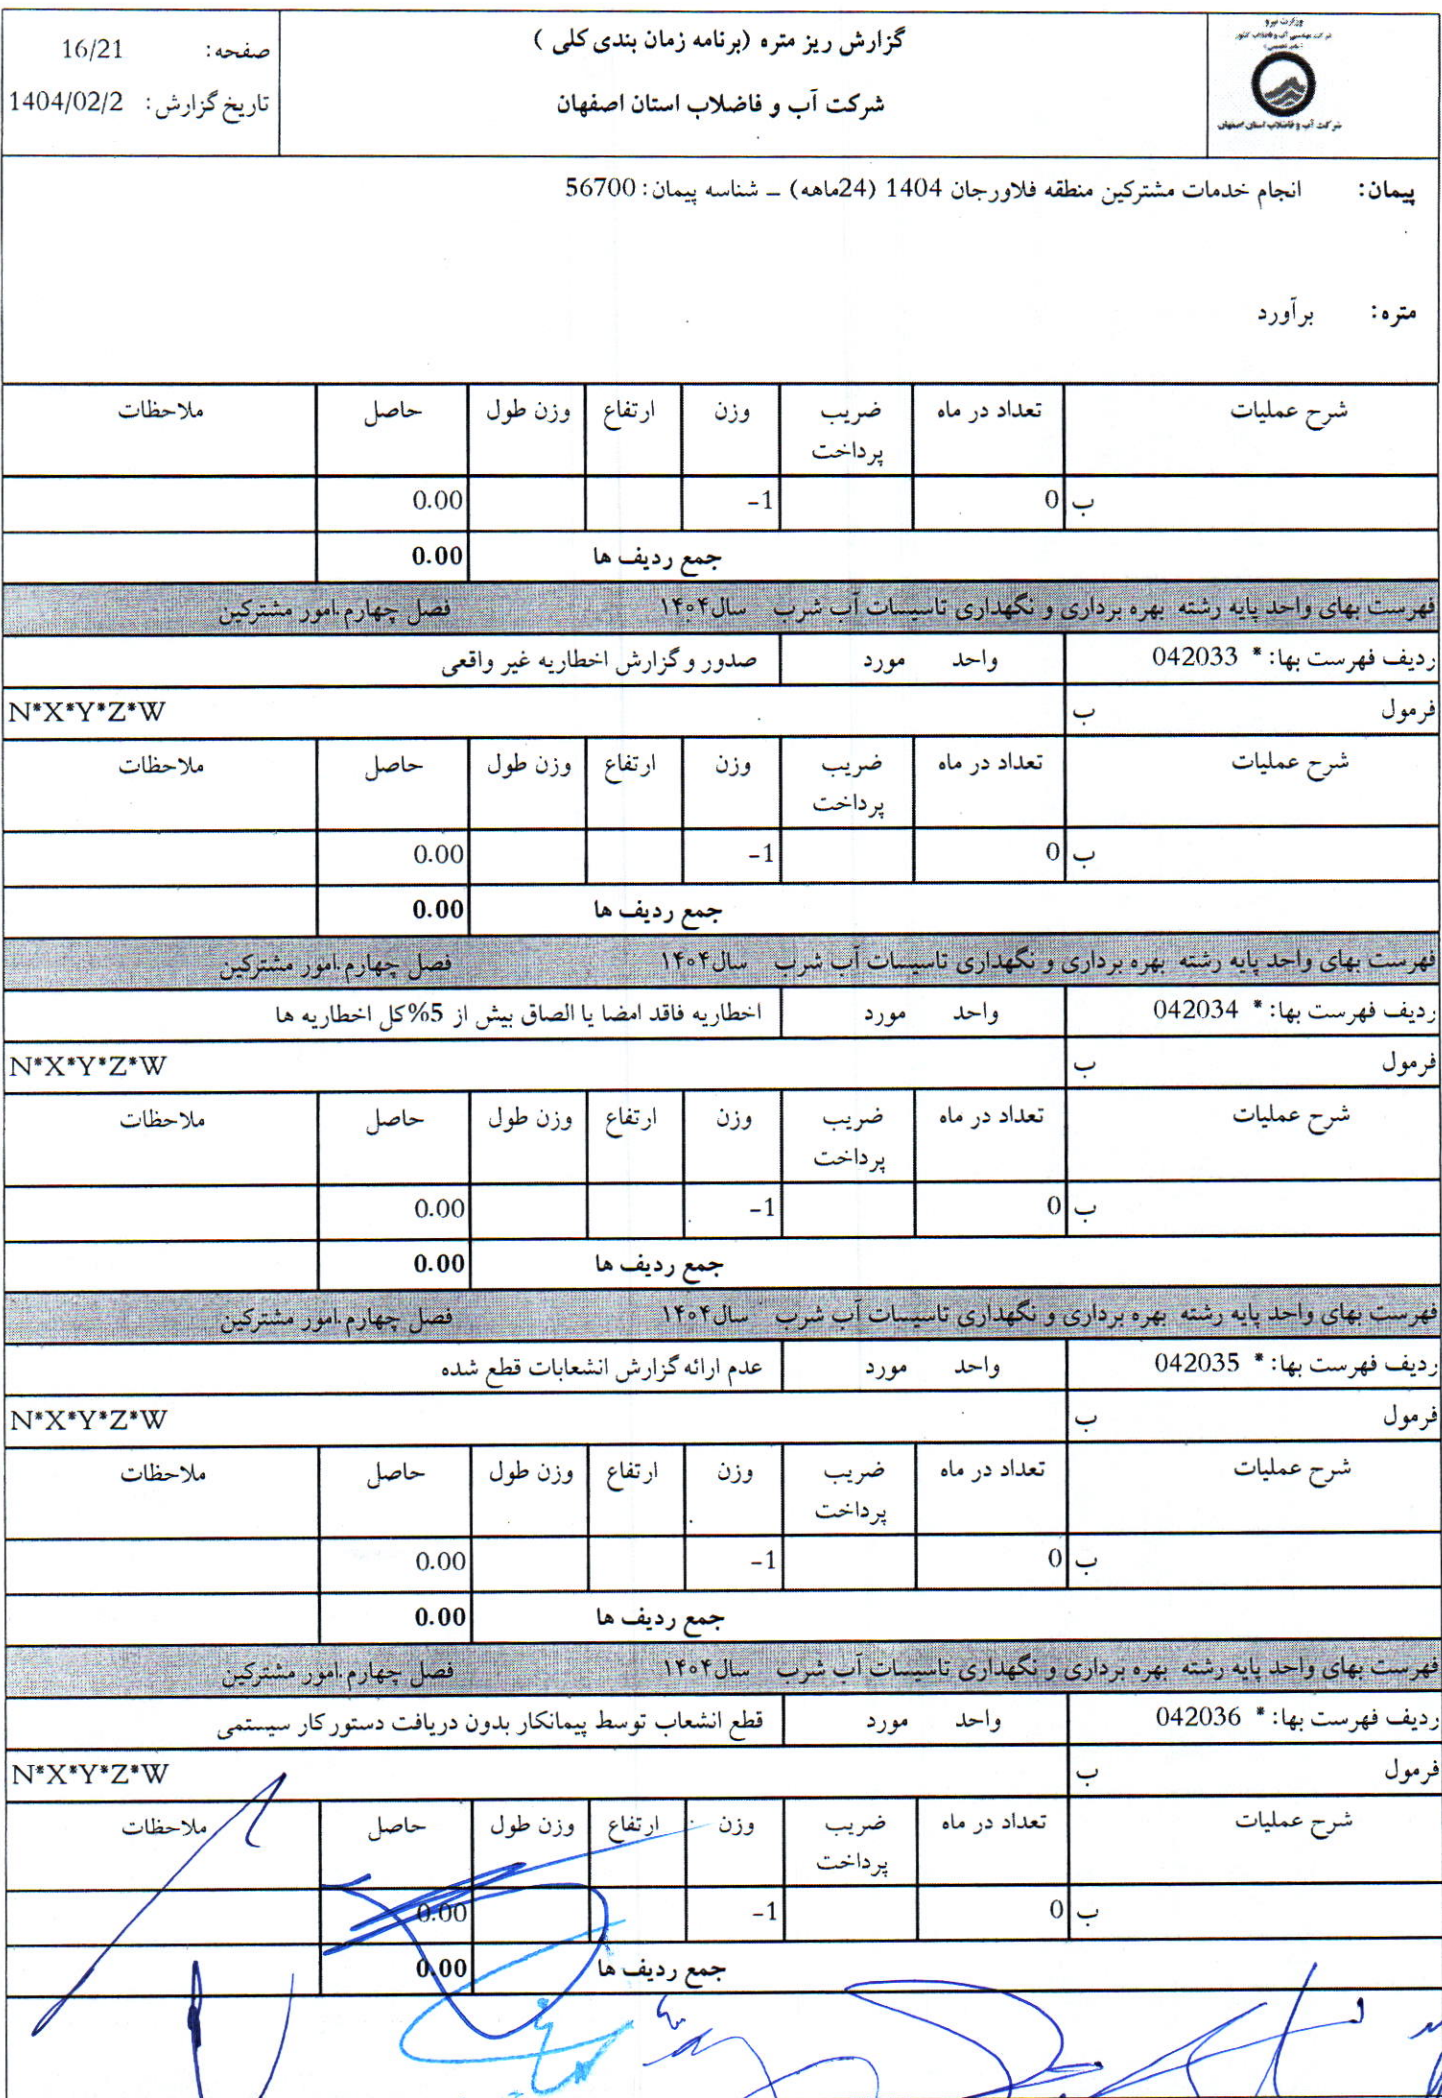 وزارت نیرو
شرکت مهندسی آب و فاضلاب کشور
شرکت آب و فاضلاب استان اصفهان
گزارش ریز متره (برنامه زمان بندی کلی )
شرکت آب و فاضلاب استان اصفهان
صفحه: 16/21
تاریخ گزارش: 1404/02/2
پیمان: انجام خدمات مشترکین منطقه فلاورجان 1404 (24ماهه) – شناسه پیمان: 56700
متره: برآورد
شرح عملیات تعداد در ماه ضریب پرداخت وزن ارتفاع وزن طول حاصل ملاحظات
ب 0 -1 0.00
جمع ردیف ها 0.00
فهرست بهای واحد پایه رشته بهره برداری و نگهداری تاسیسات آب شرب سال۱۴۰۴ فصل چهارم.امور مشترکین
ردیف فهرست بها: * 042033 واحد مورد صدور و گزارش اخطاریه غیر واقعی
فرمول ب N*X*Y*Z*W
شرح عملیات تعداد در ماه ضریب پرداخت وزن ارتفاع وزن طول حاصل ملاحظات
ب 0 -1 0.00
جمع ردیف ها 0.00
فهرست بهای واحد پایه رشته بهره برداری و نگهداری تاسیسات آب شرب سال۱۴۰۴ فصل چهارم.امور مشترکین
ردیف فهرست بها: * 042034 واحد مورد اخطاریه فاقد امضا یا الصاق بیش از 5%کل اخطاریه ها
فرمول ب N*X*Y*Z*W
شرح عملیات تعداد در ماه ضریب پرداخت وزن ارتفاع وزن طول حاصل ملاحظات
ب 0 -1 0.00
جمع ردیف ها 0.00
فهرست بهای واحد پایه رشته بهره برداری و نگهداری تاسیسات آب شرب سال۱۴۰۴ فصل چهارم.امور مشترکین
ردیف فهرست بها: * 042035 واحد مورد عدم ارائه گزارش انشعابات قطع شده
فرمول ب N*X*Y*Z*W
شرح عملیات تعداد در ماه ضریب پرداخت وزن ارتفاع وزن طول حاصل ملاحظات
ب 0 -1 0.00
جمع ردیف ها 0.00
فهرست بهای واحد پایه رشته بهره برداری و نگهداری تاسیسات آب شرب سال۱۴۰۴ فصل چهارم.امور مشترکین
ردیف فهرست بها: * 042036 واحد مورد قطع انشعاب توسط پیمانکار بدون دریافت دستور کار سیستمی
فرمول ب N*X*Y*Z*W
شرح عملیات تعداد در ماه ضریب پرداخت وزن ارتفاع وزن طول حاصل ملاحظات
ب 0 -1 0.00
جمع ردیف ها 0.00